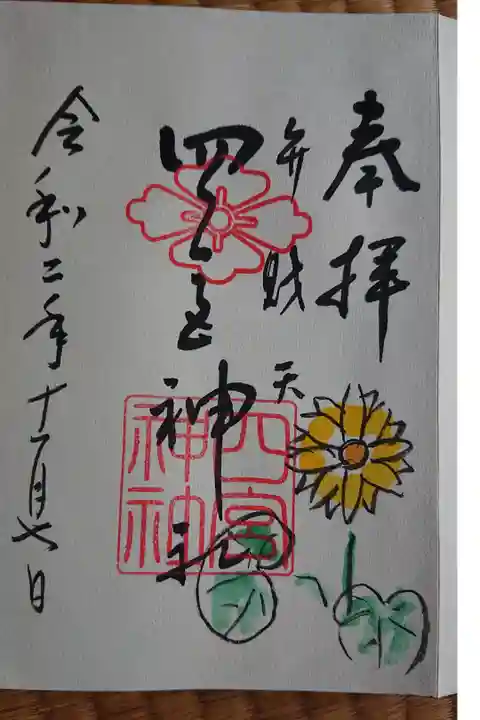 奉拝
弁財天
四宮神社
四宮
神社
令和二年十一月七日